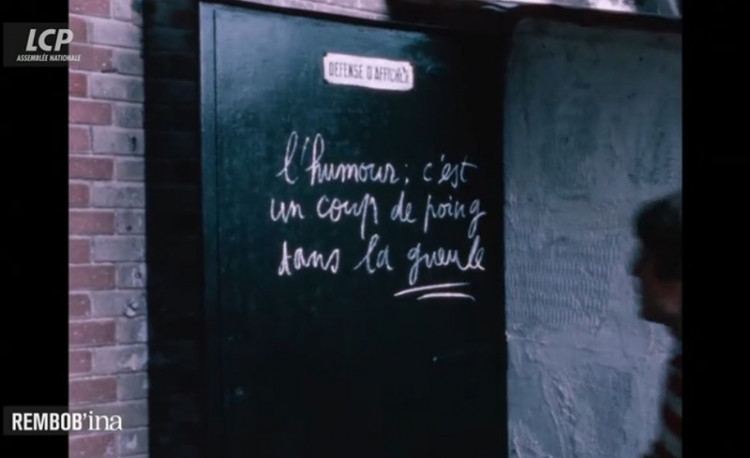 LCP
ASSEMBLÉE NATIONALE
DEFENSE D'AFFICHER
l'humour : c'est
un coup de poing
dans la gueule
REMBOB'ina